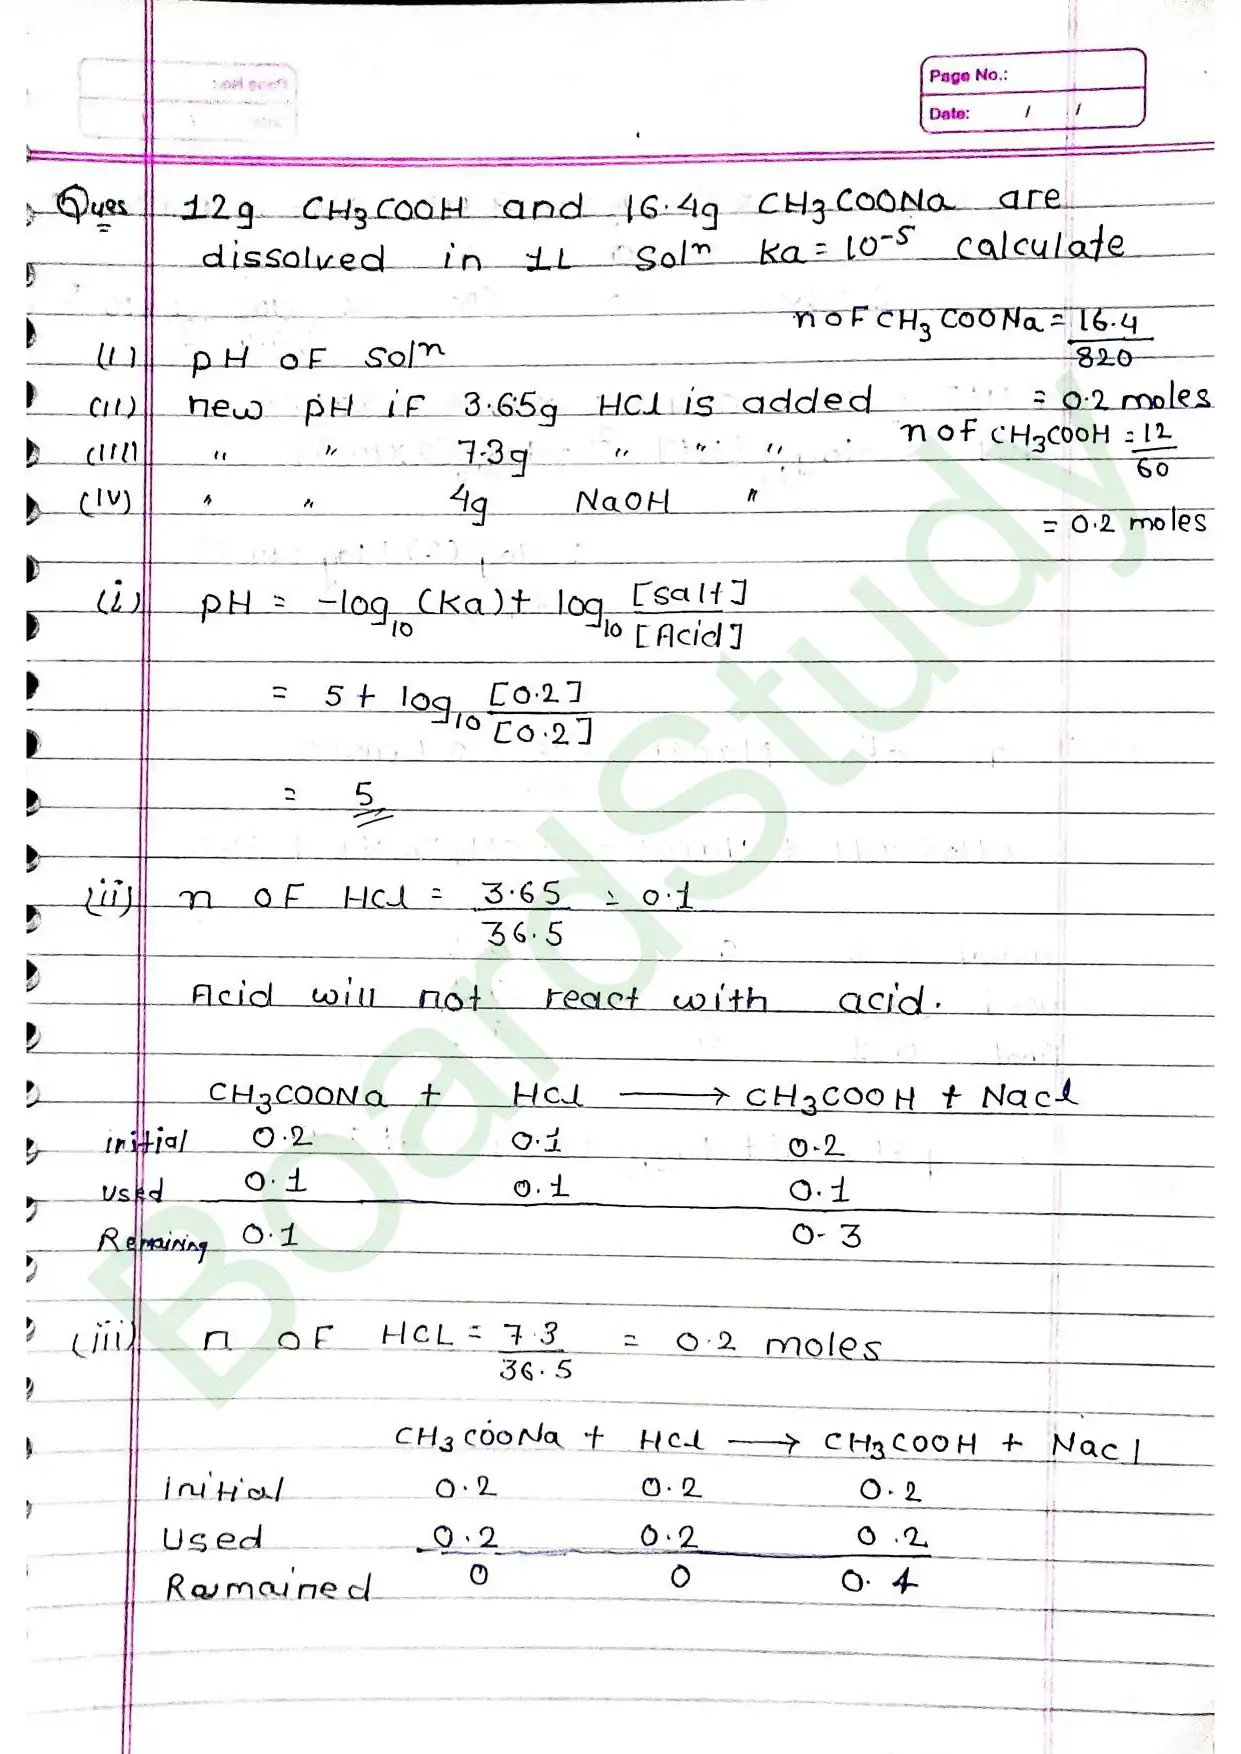 Page No.:
Date: / /
Ques 12g CH3COOH and 16.4g CH3COONa are
dissolved in 1L Solⁿ Ka = 10⁻⁵ calculate
n of CH3COONa = 16.4
820
(i) pH of Solⁿ
= 0.2 moles
(ii) new pH if 3.65g HCl is added
n of CH3COOH = 12
60
(iii) " " 7.3g " " "
(iv) " " 4g NaOH "
= 0.2 moles
(i) pH = -log10 (Ka) + log10 [salt]
[Acid]
= 5 + log10 [0.2]
[0.2]
= 5
(ii) n of HCl = 3.65 = 0.1
36.5
Acid will not react with acid.
CH3COONa + HCl ⟶ CH3COOH + NaCl
initial 0.2 0.1 0.2
used 0.1 0.1 0.1
Remaining 0.1 0.3
(iii) n of HCL = 7.3 = 0.2 moles
36.5
CH3COONa + HCl ⟶ CH3COOH + NaCl
Initial 0.2 0.2 0.2
Used 0.2 0.2 0.2
Remained 0 0 0.4
BoardStudy